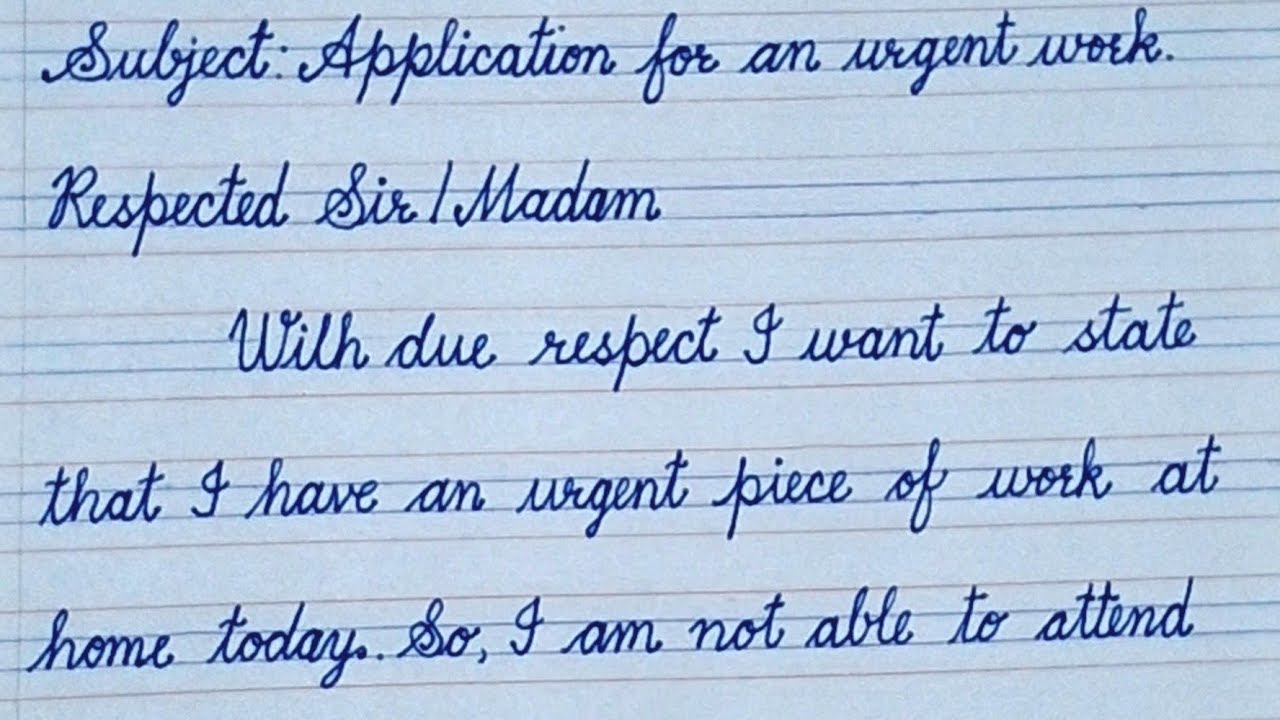 Subject: Application for an urgent work.
Respected Sir/Madam
With due respect I want to state
that I have an urgent piece of work at
home today.. So, I am not able to attend